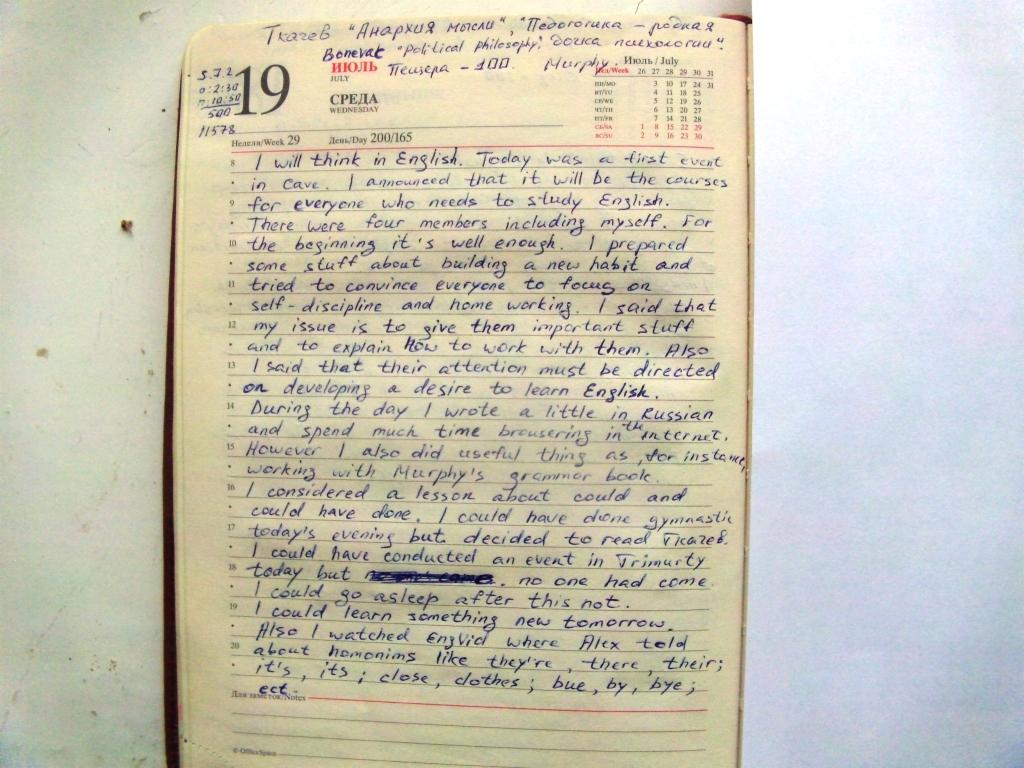 Ткачев "Анархия мысли", "Педогогика – родная
Bonevac "Political philosophy". дочка психологии".
Пещера – 100. Murphy.
5.7.2
0:2:30
П:10:50
500
11578
19
ИЮЛЬ
JULY
СРЕДА
WEDNESDAY
Июль / July
Нед/Week 26 27 28 29 30 31
ПН/MO 3 10 17 24 31
ВТ/TU 4 11 18 25
СР/WE 5 12 19 26
ЧТ/TH 6 13 20 27
ПТ/FR 7 14 21 28
СБ/SA 1 8 15 22 29
ВС/SU 2 9 16 23 30
Неделя/Week 29 День/Day 200/165
8 I will think in English. Today was a first event
in cave. I announced that it will be the courses
9 for everyone who needs to study English.
There were four members including myself. For
10 the beginning it's well enough. I prepared
some stuff about building a new habit and
11 tried to convince everyone to focus on
self-discipline and home working. I said that
12 my issue is to give them important stuff
and to explain how to work with them. Also
13 I said that their attention must be directed
on developing a desire to learn English.
14 During the day I wrote a little in Russian
and spend much time brousering in the internet.
15 However I also did useful thing as, for instance,
working with Murphy's grammar book.
16 I considered a lesson about could and
could have done. I could have done gymnastic
17 today's evening but decided to read Ткачев.
I could have conducted an event in Trimurty
18 today but no one had come.
I could go asleep after this not.
19 I could learn something new tomorrow.
Also I watched EngVid where Alex told
20 about homonims like they're, there, their;
it's, its; close, clothes; bue, by, bye;
ect.
Для заметок/Notes
© OfficeSpace